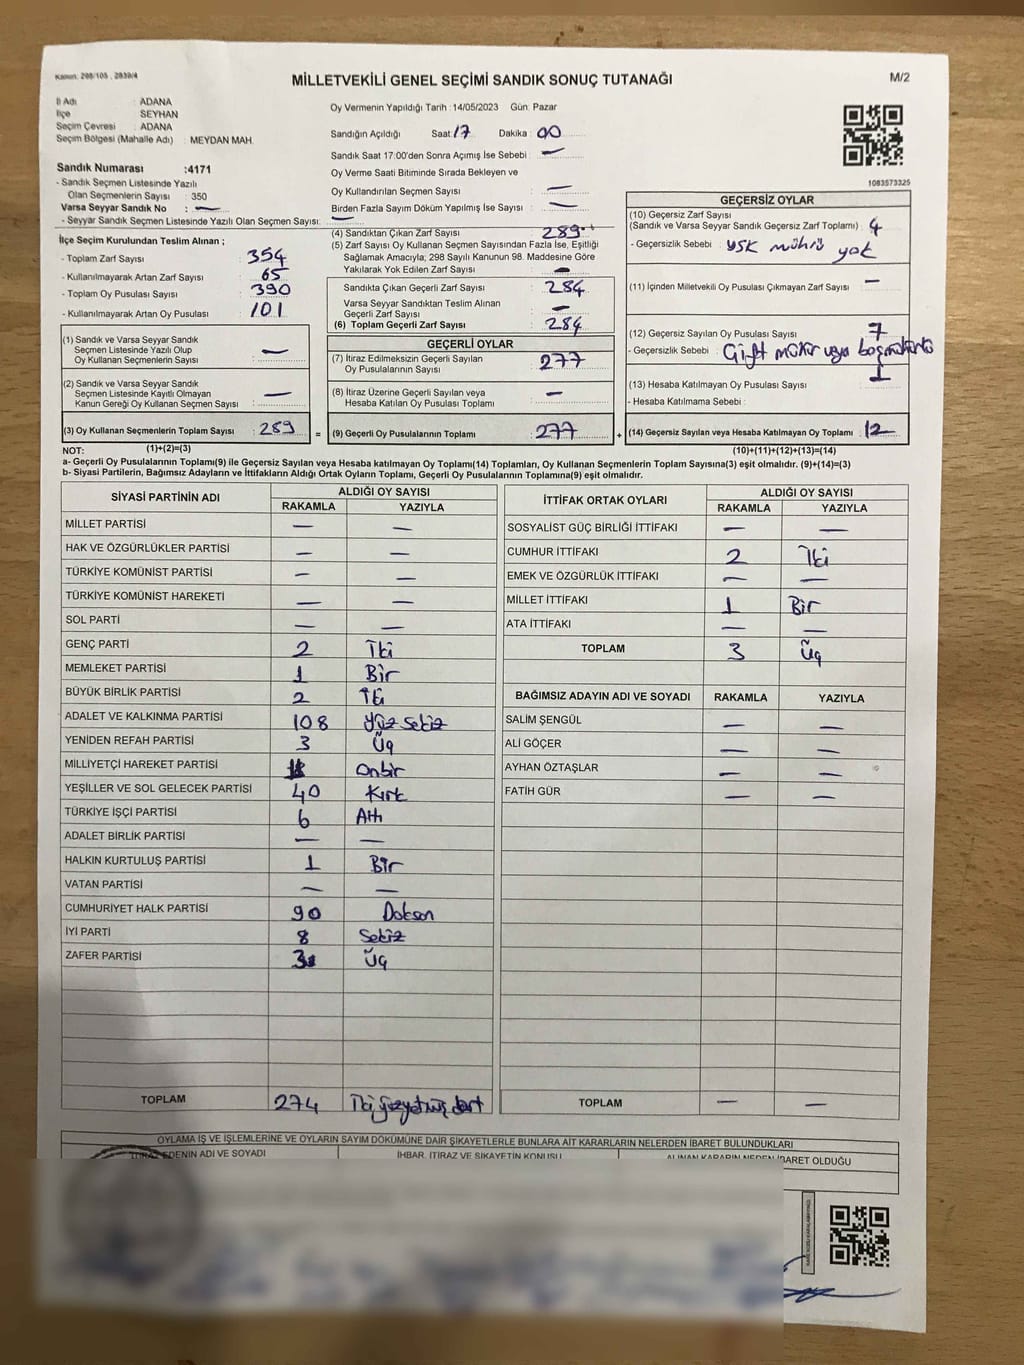 Kanun: 298/105 , 2839/4
MİLLETVEKİLİ GENEL SEÇİMİ SANDIK SONUÇ TUTANAĞI
M/2
İl Adı : ADANA
İlçe SEYHAN
Seçim Çevresi : ADANA
Seçim Bölgesi (Mahalle Adı) : MEYDAN MAH.
Sandık Numarası :4171
- Sandık Seçmen Listesinde Yazılı
Olan Seçmenlerin Sayısı : 350
Varsa Seyyar Sandık No : —
- Seyyar Sandık Seçmen Listesinde Yazılı Olan Seçmen Sayısı: —
Oy Vermenin Yapıldığı Tarih : 14/05/2023 Gün: Pazar
Sandığın Açıldığı Saat: 17 Dakika : 00
Sandık Saat 17:00'den Sonra Açımış İse Sebebi : —
Oy Verme Saati Bitiminde Sırada Bekleyen ve
Oy Kullandırılan Seçmen Sayısı : —
Birden Fazla Sayım Döküm Yapılmış İse Sayısı : —
1083573325
İlçe Seçim Kurulundan Teslim Alınan ;
- Toplam Zarf Sayısı : 354
- Kullanılmayarak Artan Zarf Sayısı : 65
- Toplam Oy Pusulası Sayısı : 390
- Kullanılmayarak Artan Oy Pusulası : 101
(1) Sandık ve Varsa Seyyar Sandık
Seçmen Listesinde Yazılı Olup
Oy Kullanan Seçmenlerin Sayısı : —
(2) Sandık ve Varsa Seyyar Sandık
Seçmen Listesinde Kayıtlı Olmayan
Kanun Gereği Oy Kullanan Seçmen Sayısı : —
(3) Oy Kullanan Seçmenlerin Toplam Sayısı : 289
(1)+(2)=(3)
(4) Sandıktan Çıkan Zarf Sayısı : 289
(5) Zarf Sayısı Oy Kullanan Seçmen Sayısından Fazla İse, Eşitliği
Sağlamak Amacıyla; 298 Sayılı Kanunun 98. Maddesine Göre
Yakılarak Yok Edilen Zarf Sayısı : —
Sandıkta Çıkan Geçerli Zarf Sayısı : 284
Varsa Seyyar Sandıktan Teslim Alınan
Geçerli Zarf Sayısı : —
(6) Toplam Geçerli Zarf Sayısı : 284
GEÇERLİ OYLAR
(7) İtiraz Edilmeksizin Geçerli Sayılan
Oy Pusulalarının Sayısı : 277
(8) İtiraz Üzerine Geçerli Sayılan veya
Hesaba Katılan Oy Pusulası Toplamı : —
= (9) Geçerli Oy Pusulalarının Toplamı : 277 +
GEÇERSİZ OYLAR
(10) Geçersiz Zarf Sayısı
(Sandık ve Varsa Seyyar Sandık Geçersiz Zarf Toplamı) : 4
- Geçersizlik Sebebi : YSK mührü yok
(11) İçinden Milletvekili Oy Pusulası Çıkmayan Zarf Sayısı : —
(12) Geçersiz Sayılan Oy Pusulası Sayısı : 7
- Geçersizlik Sebebi : Çift mühür veya
(13) Hesaba Katılmayan Oy Pusulası Sayısı : 1
- Hesaba Katılmama Sebebi :
(14) Geçersiz Sayılan veya Hesaba Katılmayan Oy Toplamı : 12
(10)+(11)+(12)+(13)=(14)
NOT:
a- Geçerli Oy Pusulalarının Toplamı(9) ile Geçersiz Sayılan veya Hesaba katılmayan Oy Toplamı(14) Toplamları, Oy Kullanan Seçmenlerin Toplam Sayısına(3) eşit olmalıdır. (9)+(14)=(3)
b- Siyasi Partilerin, Bağımsız Adayların ve İttifakların Aldığı Ortak Oyların Toplamı, Geçerli Oy Pusulalarının Toplamına(9) eşit olmalıdır.
SİYASİ PARTİNİN ADI ALDIĞI OY SAYISI
RAKAMLA YAZIYLA
MİLLET PARTİSİ — —
HAK VE ÖZGÜRLÜKLER PARTİSİ — —
TÜRKİYE KOMÜNİST PARTİSİ — —
TÜRKİYE KOMÜNİST HAREKETİ — —
SOL PARTİ — —
GENÇ PARTİ 2 İki
MEMLEKET PARTİSİ 1 Bir
BÜYÜK BİRLİK PARTİSİ 2 İki
ADALET VE KALKINMA PARTİSİ 108 Yüz sekiz
YENİDEN REFAH PARTİSİ 3 Üç
MİLLİYETÇİ HAREKET PARTİSİ Onbir
YEŞİLLER VE SOL GELECEK PARTİSİ 40 Kırk
TÜRKİYE İŞÇİ PARTİSİ 6 Altı
ADALET BİRLİK PARTİSİ — —
HALKIN KURTULUŞ PARTİSİ 1 Bir
VATAN PARTİSİ — —
CUMHURİYET HALK PARTİSİ 90 Doksan
İYİ PARTİ 8 Sekiz
ZAFER PARTİSİ 3 Üç
TOPLAM 274 İki yüz yetmiş dört
İTTİFAK ORTAK OYLARI ALDIĞI OY SAYISI
RAKAMLA YAZIYLA
SOSYALİST GÜÇ BİRLİĞİ İTTİFAKI — —
CUMHUR İTTİFAKI 2 İki
EMEK VE ÖZGÜRLÜK İTTİFAKI — —
MİLLET İTTİFAKI 1 Bir
ATA İTTİFAKI — —
TOPLAM 3 Üç
BAĞIMSIZ ADAYIN ADI VE SOYADI RAKAMLA YAZIYLA
SALİM ŞENGÜL — —
ALİ GÖÇER — —
AYHAN ÖZTAŞLAR — —
FATİH GÜR — —
TOPLAM — —
OYLAMA İŞ VE İŞLEMLERİNE VE OYLARIN SAYIM DÖKÜMÜNE DAİR ŞİKAYETLERLE BUNLARA AİT KARARLARIN NELERDEN İBARET BULUNDUKLARI
İTİRAZ EDENİN ADI VE SOYADI İHBAR, İTİRAZ VE ŞİKAYETİN KONUSU ALINAN KARARIN NEDEN İBARET OLDUĞU